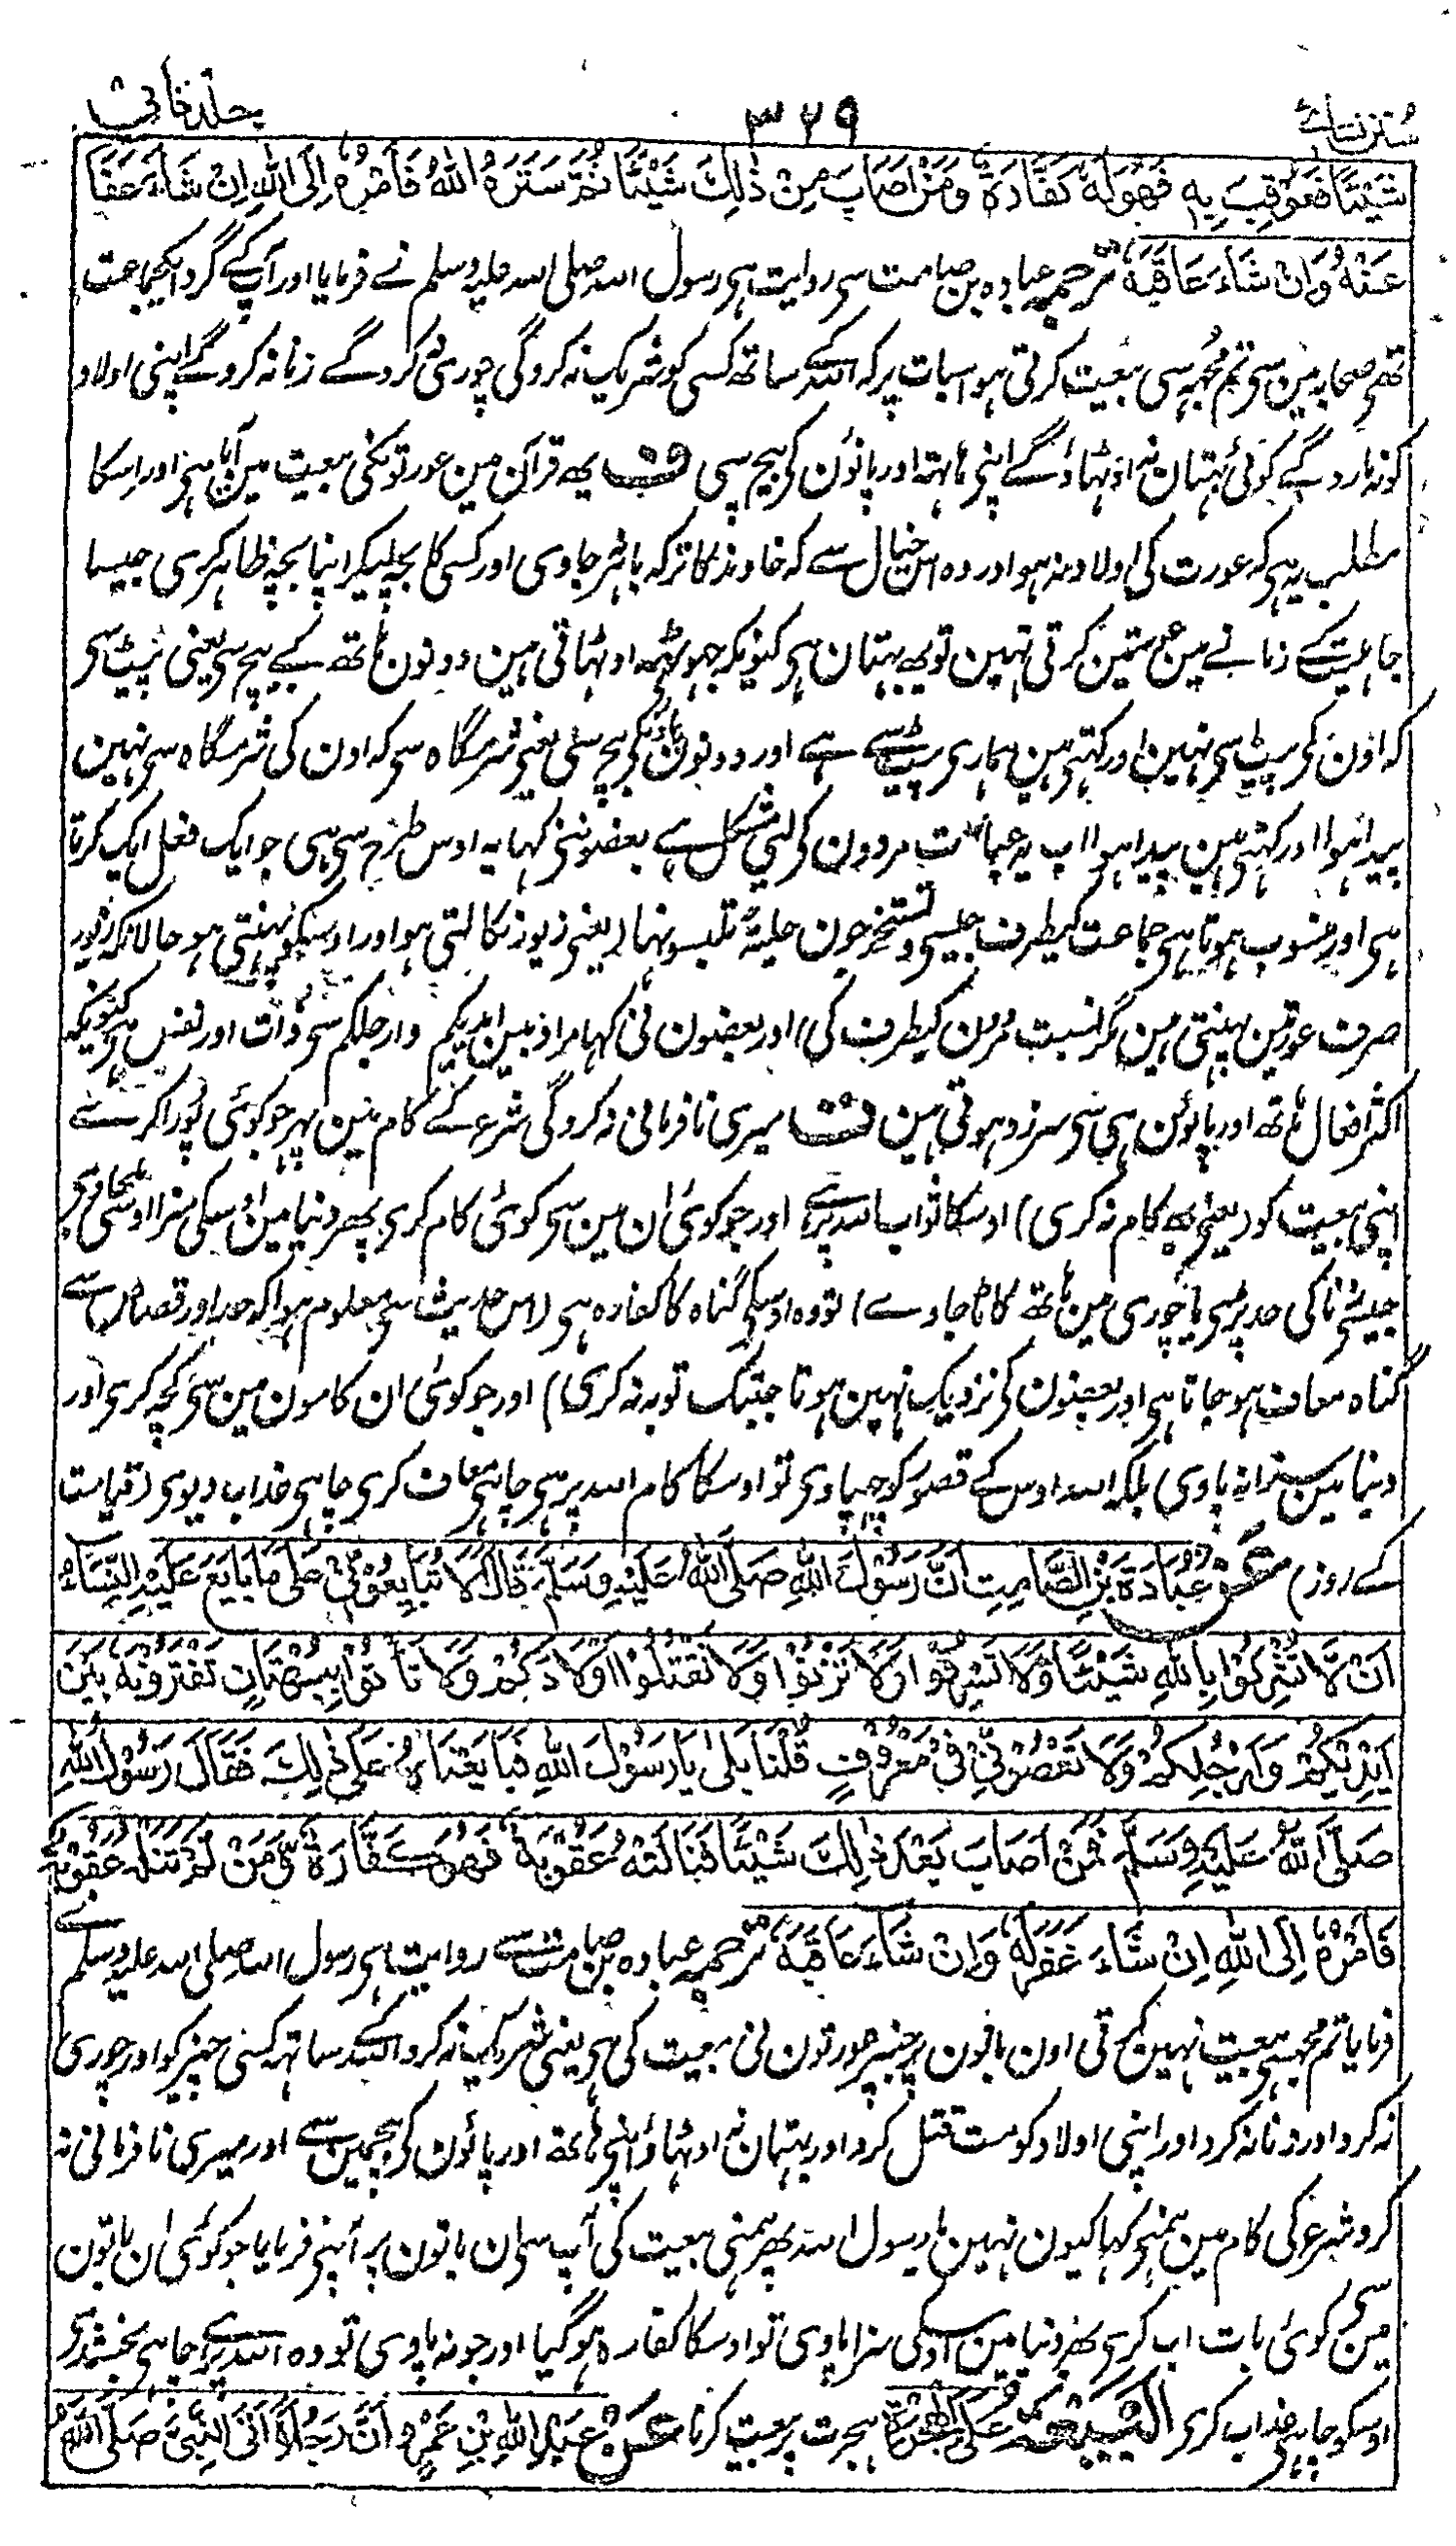 سنن نسائی ۳۲۹ جلد ثانی
شَيْئًا فَعُوقِبَ بِهٖ فَهُوَ لَهٗ كَفَّارَةٌ وَمَنْ اَصَابَ مِنْ ذٰلِكَ شَيْئًا ثُمَّ سَتَرَهُ اللّٰهُ فَاَمْرُهٗ اِلَى اللّٰهِ اِنْ شَاءَ عَفَا
عَنْهُ وَاِنْ شَاءَ عَاقَبَهٗ ترجمہ عبادہ بن صامت سی روایت ہی رسول اللہ صلی اللہ علیہ وسلم نے فرمایا اور آپ کے گرد ایک جماعت
تھی صحابہ مین سی تم مجہہ سی بیعت کرتی ہو اسبات پر کہ اللہ کے ساتھ کسی کو شریک نہ کرو گی چوری نہ کرو گے زنا نہ کرو گے اپنی اولاد
کو نہ مارو گے کوئی بہتان نہ اوٹہاؤ گے اپنی ہاتہہ اور پانؤن کی بیچ سی ف یہ قرآن مین عورتونکی بیعت مین آیا ہی اور اسکا
مطلب یہ ہی کہ عورت کی اولاد نہ ہو اور وہ اس خیال سے کہ خاوند کا ترکہ باہر جاوی اور کسی کا بچہ لیکر اپنا بچہ ظاہر کری جیسا
جاہلیت کے زمانے مین عورتین کرتی تہین تو یہ بہتان ہی کیونکہ جہوٹہہ اوٹہاتی ہین دونون ہاتھ کے بیچ سی یعنی پیٹ سی
کہ اون کی پیٹ سی نہین اور کہتی ہین ہماری پیٹ سے ہے اور دونون پاؤن کی بیچ سی یعنی شرمگاہ سی کہ اون کی شرمگاہ سی نہین
پیدا ہوا اور کہتی ہین پیدا ہوا اب یہ عبارت مردون کی لئی مشکل ہے بعضونی کہا یہ اوس طرح سی ہی جو ایک فعل ایک کرتا
ہی اور منسوب ہوتا ہی جماعت کیطرف جیسی وتستخرجون حلیۃ تلبسونہا (یعنی زیور نکالتی ہو اور اوسکو پہنتی ہو حالانکہ زیور
صرف عورتین پہنتی ہین مگر نسبت مردون کیطرف کی) اور بعضون نی کہا مراد بین ایدیکم وارجلکم سی ذات اور نفس ہی کیونکہ
اکثر افعال ہاتھ اور پاؤن ہی سی سرزد ہوتی ہین ف میری نافرمانی نہ کرو گی شرع کے کام مین پہر جو کوئی پورا کرے
اپنی بیعت کو (یعنی یہ کام نہ کری) اوسکا ثواب اللہ پر ہے اور جو کوئی ان مین سی کوئی کام کری پھر دنیا مین اوسکی سزا اوسکو مل جاوی
جیسی زنا کی حد پڑی یا چوری مین ہاتھ کاٹا جاوے) تو وہ اوسکی گناہ کا کفارہ ہی (اس حدیث سی معلوم ہوا کہ حد اور قصاص سے
گناہ معاف ہو جاتا ہی اور بعضون کی نزدیک نہین ہوتا جبتک توبہ نہ کری) اور جو کوئی ان کامون مین سی کچہ کری اور
دنیا مین سزا نہ پاوی بلکہ اللہ اوس کے قصور کو چھپاوی تو اوسکا کام اللہ پر ہی چاہی معاف کری چاہی عذاب دیوی (قیامت
کے روز) عَنْ عُبَادَةَ بْنِ الصَّامِتِ اَنَّ رَسُوْلَ اللّٰهِ صَلَّى اللّٰهُ عَلَيْهِ وَسَلَّمَ قَالَ اَلَا تُبَايِعُوْنِيْ عَلٰى مَا بَايَعَ عَلَيْهِ النِّسَاءُ
اَنْ لَّا تُشْرِكُوْا بِاللّٰهِ شَيْئًا وَّلَا تَسْرِقُوْا وَلَا تَزْنُوْا وَلَا تَقْتُلُوْا اَوْلَادَكُمْ وَلَا تَأْتُوْا بِبُهْتَانٍ تَفْتَرُوْنَهٗ بَيْنَ
اَيْدِيْكُمْ وَاَرْجُلِكُمْ وَلَا تَعْصُوْنِيْ فِيْ مَعْرُوْفٍ قُلْنَا بَلٰى يَا رَسُوْلَ اللّٰهِ فَبَايَعْنَاهُ عَلٰى ذٰلِكَ فَقَالَ رَسُوْلُ اللّٰهِ
صَلَّى اللّٰهُ عَلَيْهِ وَسَلَّمَ فَمَنْ اَصَابَ بَعْدَ ذٰلِكَ شَيْئًا فَنَالَتْهُ عُقُوْبَةٌ فَهُوَ كَفَّارَةٌ وَّمَنْ لَّمْ تَنَلْهُ عُقُوْبَةٌ
فَاَمْرُهٗ اِلَى اللّٰهِ اِنْ شَاءَ غَفَرَ لَهٗ وَاِنْ شَاءَ عَاقَبَهٗ ترجمہ عبادہ بن صامت سے روایت ہی رسول اللہ صلی اللہ علیہ وسلم نے
فرمایا تم مجہسی بیعت نہین کرتی اون باتون پر جنپر عورتون نی بیعت کی ہی یعنی شریک نہ کرو اللہ کے ساتہہ کسی چیز کو اور چوری
نہ کرو اور زنا نہ کرو اور اپنی اولاد کو مت قتل کرو اور بہتان نہ اوٹہاؤ اپنی ہاتھ اور پاؤن کی بیچمین سے اور میری نافرمانی نہ
کرو شرع کی کام مین ہمنی کہا کیون نہین یا رسول اللہ پھر ہمنی بیعت کی آپ سی ان باتون پر آپنی فرمایا جو کوئی ان باتون
مین سی کوئی بات اب کری پھر دنیا مین اوسکی سزا پاوی تو اوسکا کفارہ ہو گیا اور جو نہ پاوی تو وہ اللہ پر ہے چاہی بخشدی
اوسکو چاہی عذاب کری اَلْبَيْعَةُ عَلَى الْهِجْرَةِ ہجرت پر بیعت کرنا عَنْ عَبْدِ اللّٰهِ بْنِ عَمْرٍو اَنَّ رَجُلًا اَتَى النَّبِيَّ صَلَّى اللّٰهُ